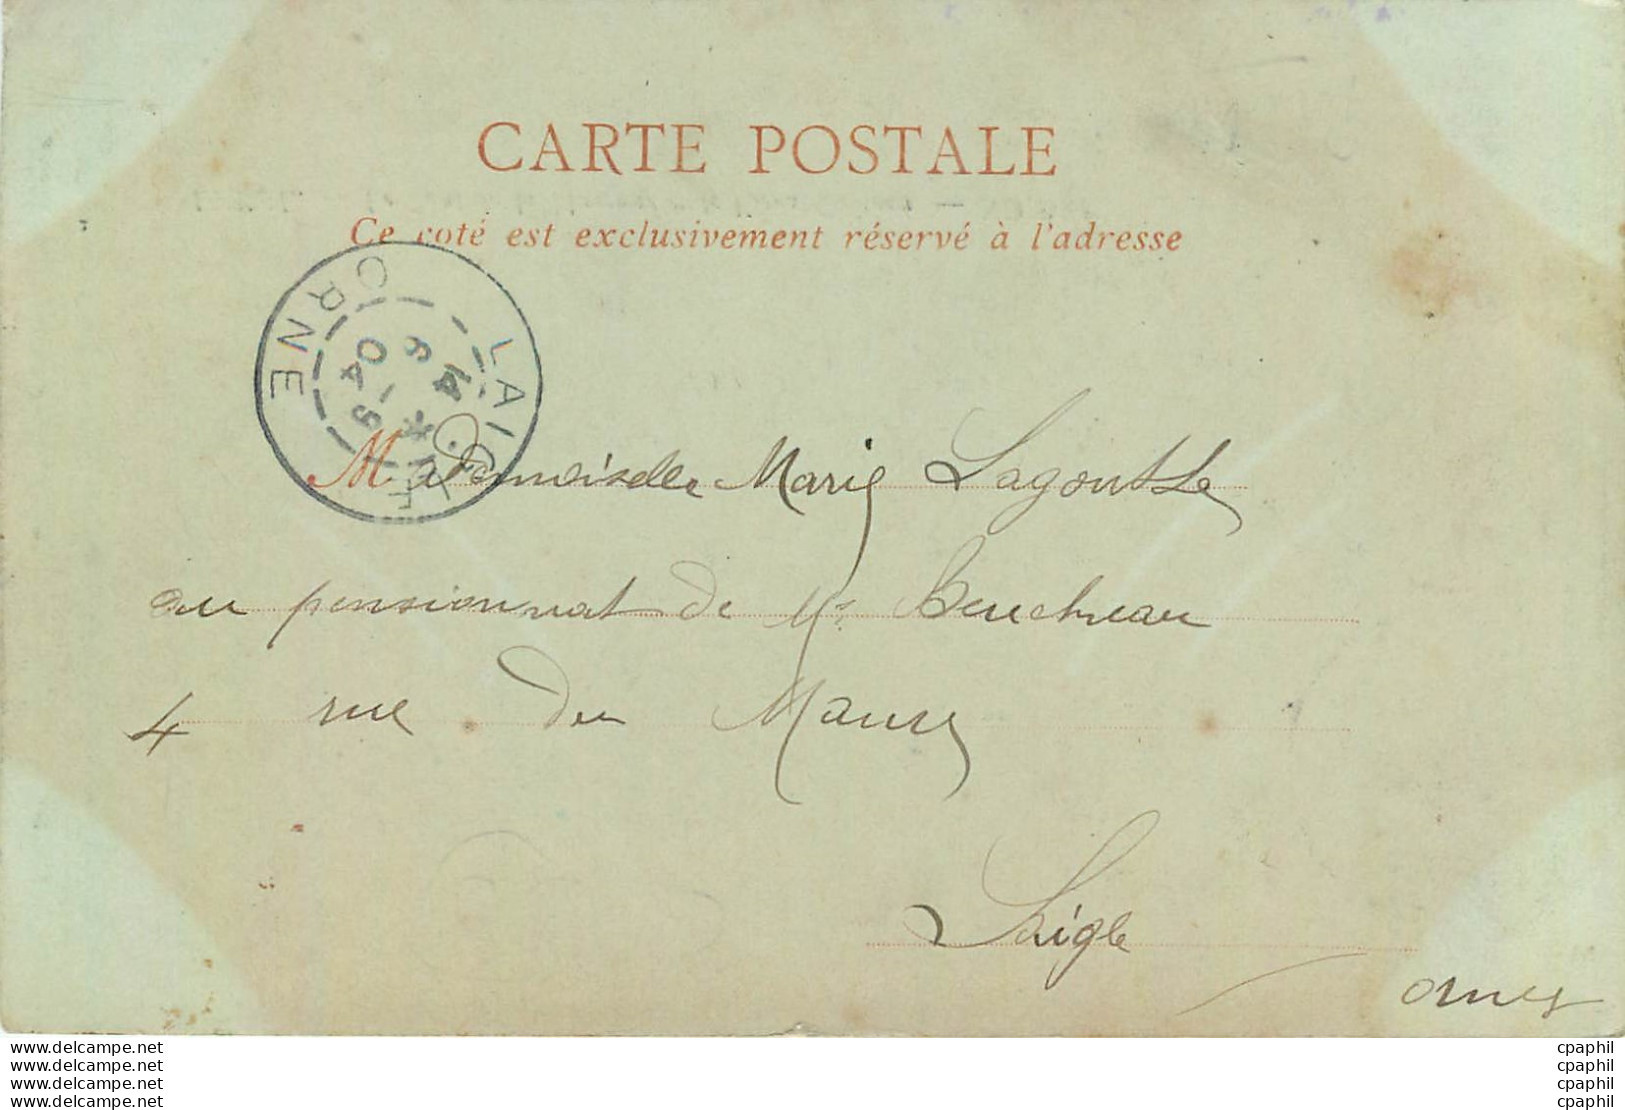 CARTE POSTALE
Ce coté est exclusivement réservé à l'adresse
LAIGLE
ORNE
14
6 - 9
04
Mademoiselle Marie Lagoutte
au pensionnat de Me
4 rue du Maure
Laigle
Orne
www.delcampe.net cpaphil
www.delcampe.net cpaphil
www.delcampe.net cpaphil
www.delcampe.net cpaphil